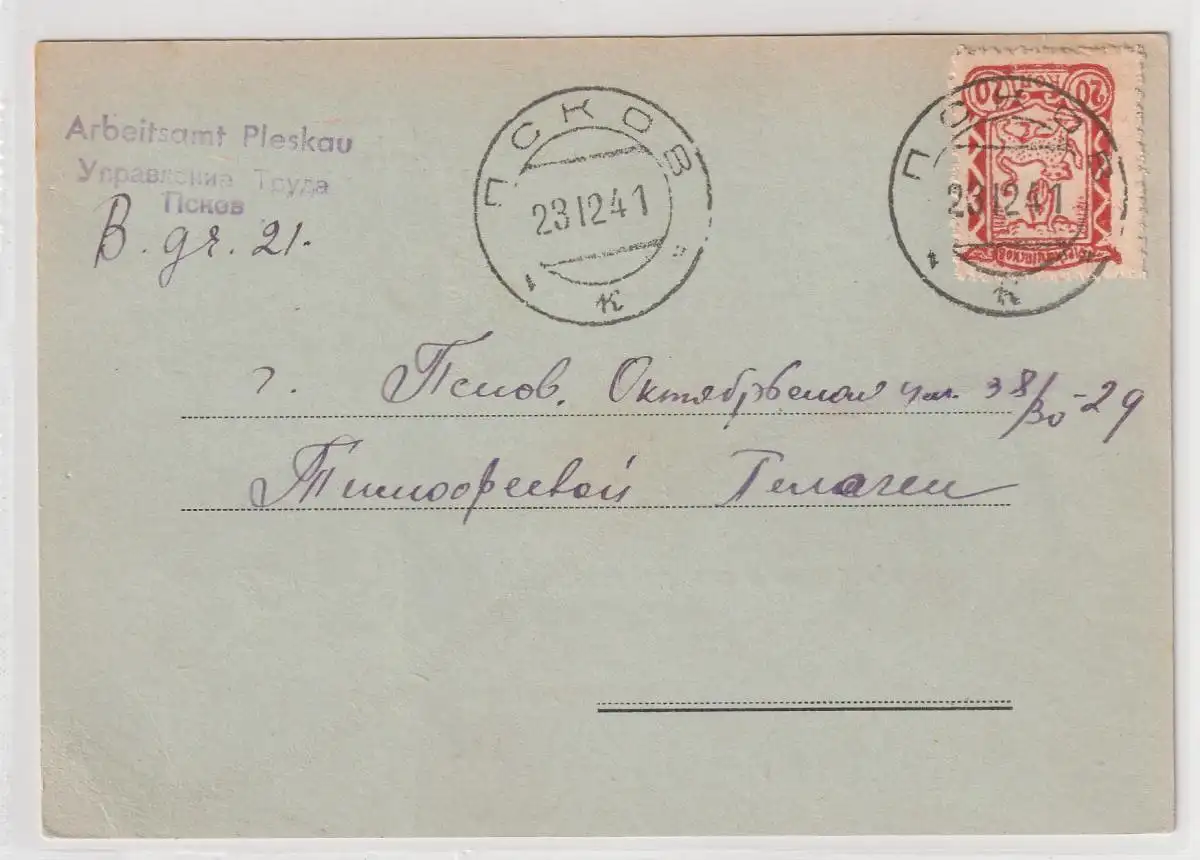 Arbeitsamt Pleskau
Управление Труда
Псков
B. gr. 21.
ПСКОВ
23 12 41
к
ПСКОВ
23 12 41
к
20 20
г. Псков. Октябрьская ул. 38/30-29
Тимофеевой Пелагеи